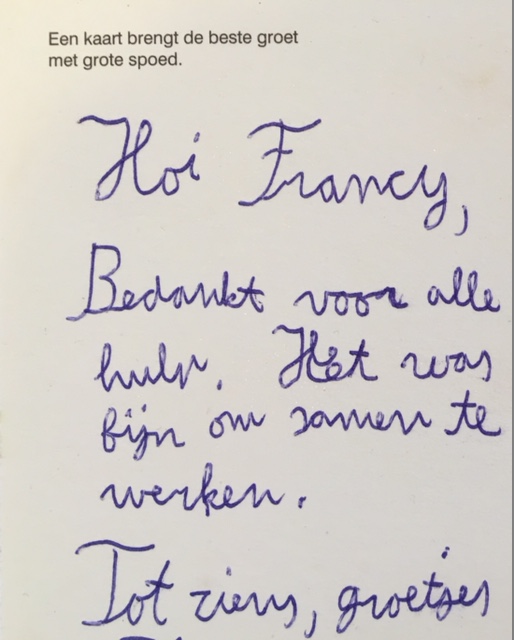 Een kaart brengt de beste groet
met grote spoed.
Hoi Francy,
Bedankt voor alle
hulp. Het was
fijn om samen te
werken.
Tot ziens, groetjes